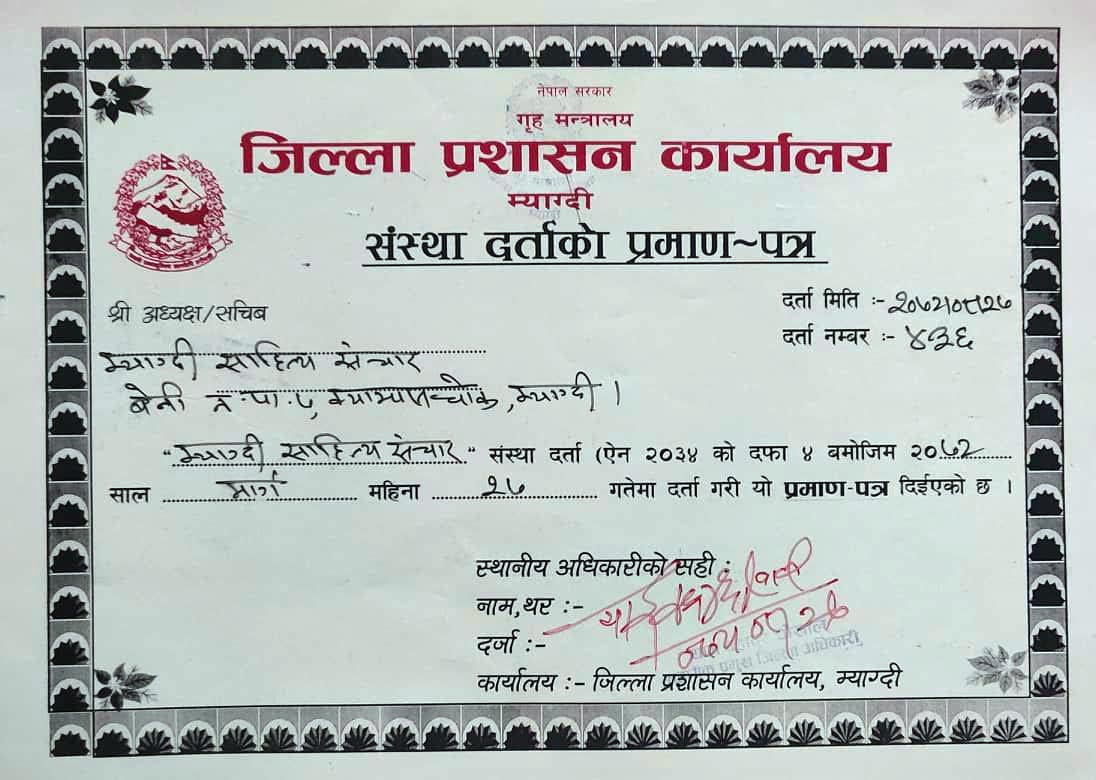 नेपाल सरकार
गृह मन्त्रालय
जिल्ला प्रशासन कार्यालय
म्याग्दी
संस्था दर्ताको प्रमाण~पत्र
दर्ता मिति :- २०७२।०८।२७
दर्ता नम्बर :- ४३६
श्री अध्यक्ष/सचिब
म्याग्दी साहित्य संचार
बेनी न.पा. म्याग्दी ।
"म्याग्दी साहित्य संचार" संस्था दर्ता (ऐन २०३४ को दफा ४ बमोजिम २०७२
साल मार्ग महिना २७ गतेमा दर्ता गरी यो प्रमाण-पत्र दिईएको छ ।
स्थानीय अधिकारीको सही :
नाम,थर :-
दर्जा :-
प्रमुख जिल्ला अधिकारी
कार्यालय :- जिल्ला प्रशासन कार्यालय, म्याग्दी